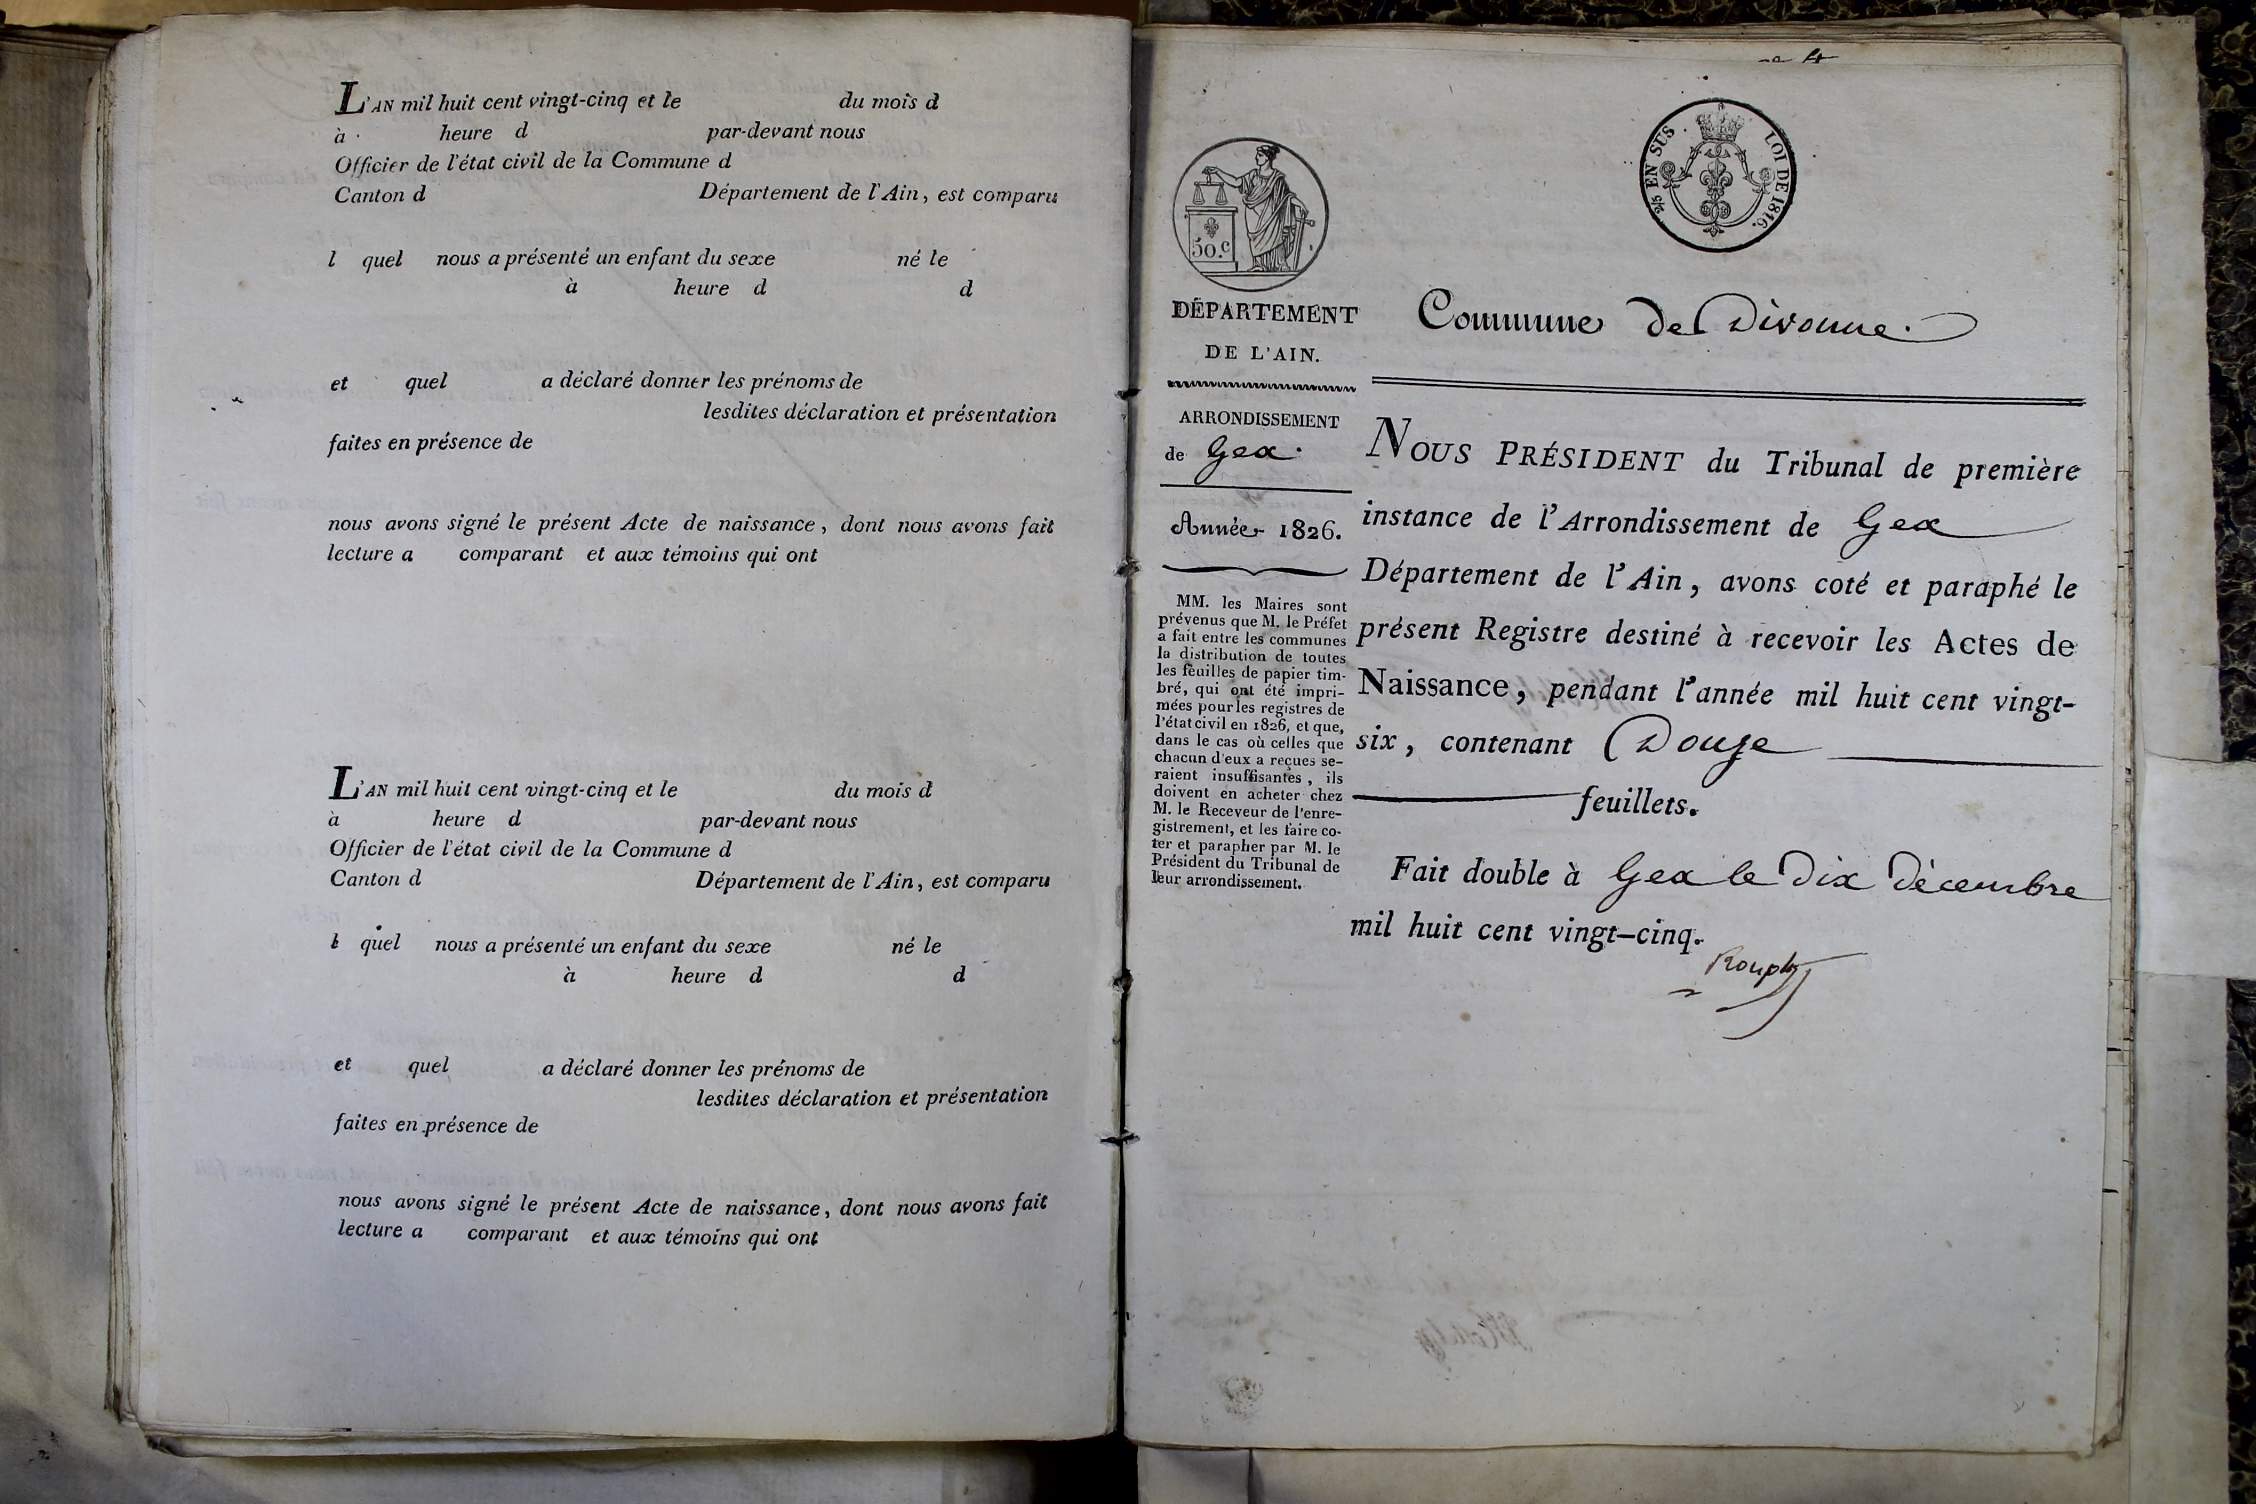 L'AN mil huit cent vingt-cinq et le du mois d
à heure d par-devant nous
Officier de l'état civil de la Commune d
Canton d Département de l'Ain, est comparu
l quel nous a présenté un enfant du sexe né le
à heure d d
et quel a déclaré donner les prénoms de
lesdites déclaration et présentation
faites en présence de
nous avons signé le présent Acte de naissance, dont nous avons fait
lecture a comparant et aux témoins qui ont
L'AN mil huit cent vingt-cinq et le du mois d
à heure d par-devant nous
Officier de l'état civil de la Commune d
Canton d Département de l'Ain, est comparu
l quel nous a présenté un enfant du sexe né le
à heure d d
et quel a déclaré donner les prénoms de
lesdites déclaration et présentation
faites en présence de
nous avons signé le présent Acte de naissance, dont nous avons fait
lecture a comparant et aux témoins qui ont
50.c
2/5 EN SUS. LOI DE 1816.
DÉPARTEMENT
DE L'AIN.
ARRONDISSEMENT
de Gex.
Année 1826.
MM. les Maires sont
prévenus que M. le Préfet
a fait entre les communes
la distribution de toutes
les feuilles de papier tim-
bré, qui ont été impri-
mées pour les registres de
l'état civil en 1826, et que,
dans le cas où celles que
chacun d'eux a reçues se-
raient insuffisantes, ils
doivent en acheter chez
M. le Receveur de l'enre-
gistrement, et les faire co-
ter et parapher par M. le
Président du Tribunal de
leur arrondissement.
Commune de Divonne.
NOUS PRÉSIDENT du Tribunal de première
instance de l'Arrondissement de Gex
Département de l'Ain, avons coté et paraphé le
présent Registre destiné à recevoir les Actes de
Naissance, pendant l'année mil huit cent vingt-
six, contenant Douze
feuillets.
Fait double à Gex le Dix Décembre
mil huit cent vingt-cinq.